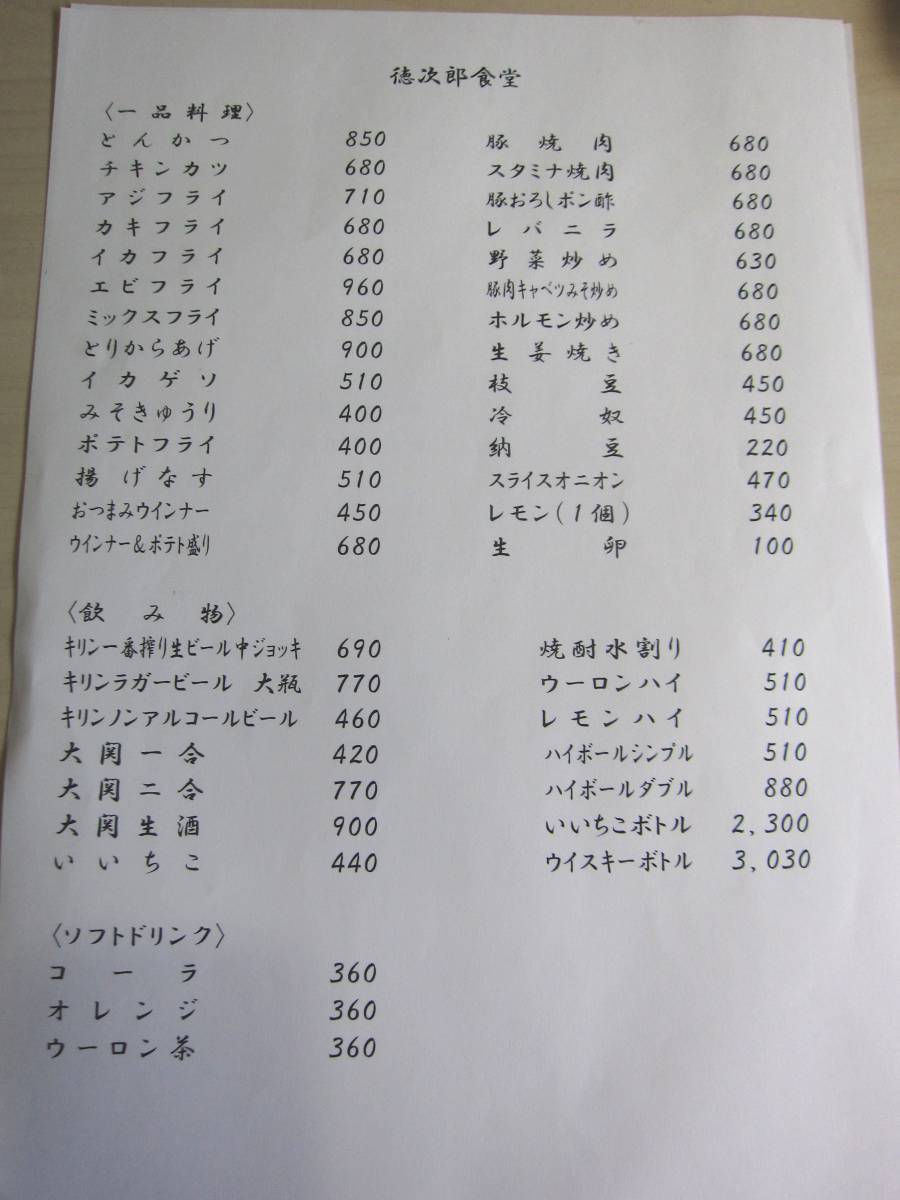 徳次郎食堂
〈一品料理〉
とんかつ 850
チキンカツ 680
アジフライ 710
カキフライ 680
イカフライ 680
エビフライ 960
ミックスフライ 850
とりからあげ 900
イカゲソ 510
みそきゅうり 400
ポテトフライ 400
揚げなす 510
おつまみウインナー 450
ウインナー&ポテト盛り 680
豚焼肉 680
スタミナ焼肉 680
豚おろしポン酢 680
レバニラ 680
野菜炒め 630
豚肉キャベツみそ炒め 680
ホルモン炒め 680
生姜焼き 680
枝豆 450
冷奴 450
納豆 220
スライスオニオン 470
レモン(1個) 340
生卵 100
〈飲み物〉
キリン一番搾り生ビール中ジョッキ 690
キリンラガービール 大瓶 770
キリンノンアルコールビール 460
大関一合 420
大関二合 770
大関生酒 900
いいちこ 440
焼酎水割り 410
ウーロンハイ 510
レモンハイ 510
ハイボールシンプル 510
ハイボールダブル 880
いいちこボトル 2,300
ウイスキーボトル 3,030
〈ソフトドリンク〉
コーラ 360
オレンジ 360
ウーロン茶 360